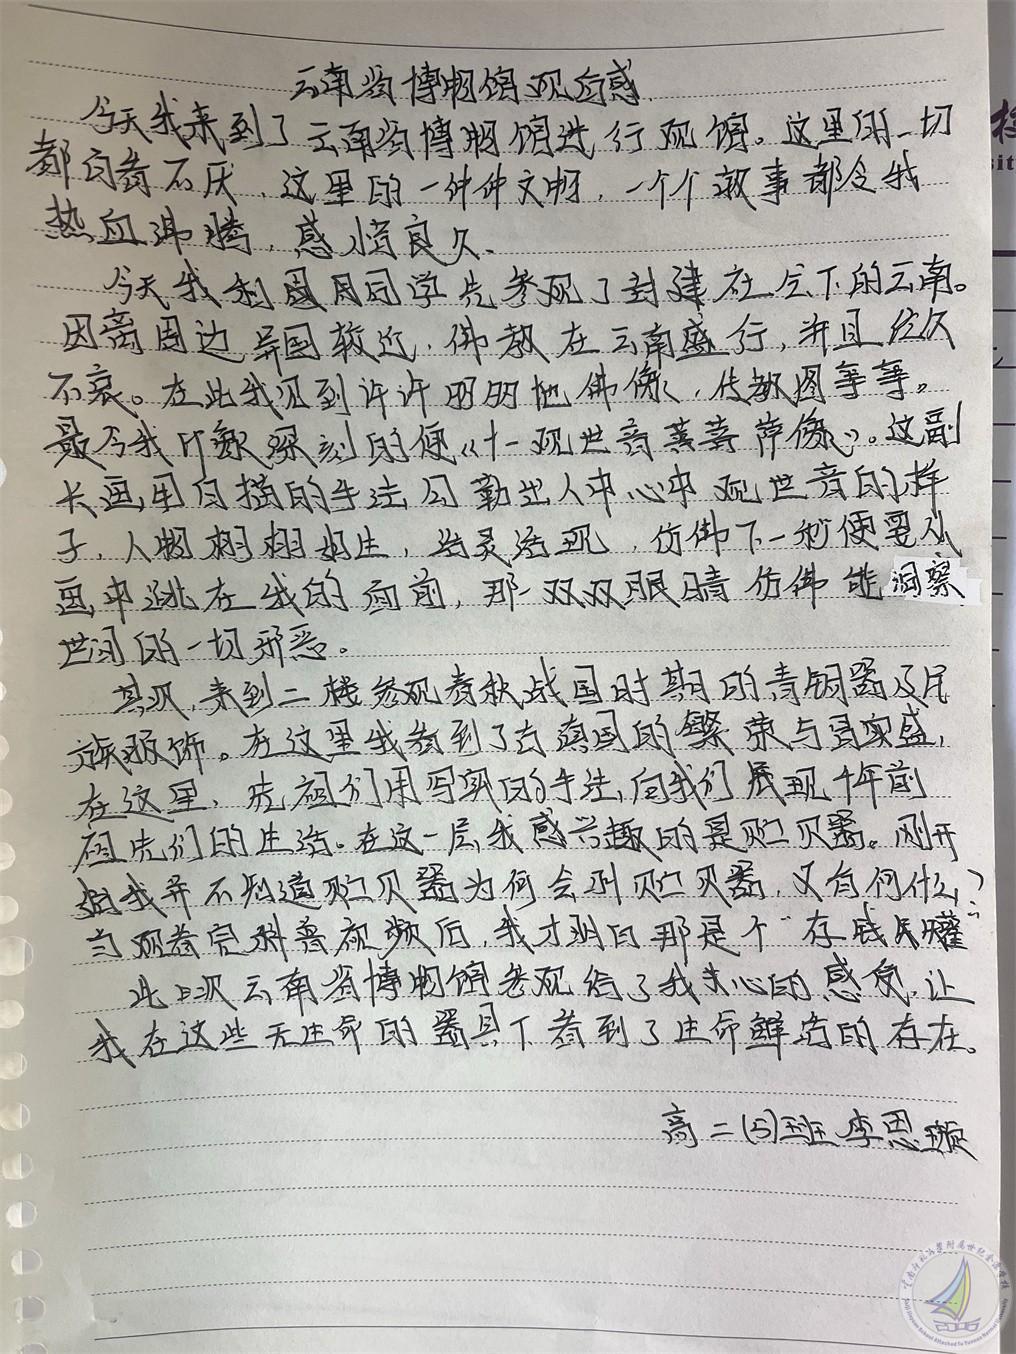 云南省博物馆观后感
今天我来到了云南省博物馆进行观馆。这里的一切
都百看不厌，这里的一件件文物，一个个故事都令我
热血沸腾，感悟良久、
今天我和同学先参观了封建社会下的云南。
因离周边异国较近，佛教在云南盛行，并且经久
不衰。在此我见到许许多多地佛像，传教图等等。
最令我印象深刻的便《十一观世音菩萨像》。这副
长画，用白描的手法勾勒出人中心中观世音的样
子，人物栩栩如生，活灵活现，仿佛下一秒便要从
画中跳在我的面前，那一双双眼睛仿佛能洞察
世间的一切邪恶。
其次，来到二楼参观春秋战国时期的青铜器及民
族服饰。在这里我看到了古滇国的繁荣与昌盛，
在这里，先祖们用写实的手法，向我们展现千年前
祖先们的生活。在这一层，我感兴趣的是贮贝器。刚开
始我并不知道贮贝器为何会叫贮贝器，又有何什么？
当观看完科普视频后，我才明白那是个"存钱罐
此次云南省博物馆参观给了我关心的感受，让
我在这些无生命的器具下看到了生命鲜活的存在。
高二(5)班 李思璇
云南师范大学附属世纪金源学校